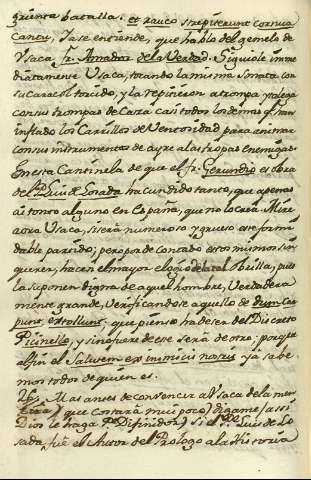 grienta batalla. et rauco strepiterunt cornua
cantu. Ya se entiende, que hablo del gemelo de
Usaca, fr. Amador de la Verdad. Siguiole imme
diatamente Usaca, tocando la misma Sonata con
su caracol torcido, y la repitieron a trompa y talega
con sus trompas de Caza casi todos los demas, que han
inflado los Carrillos de Ventosidad para animar
con sus instrumentos de ayre a las tropas enemigas.
En esta Cantinela de que el fr. Gerundio es obra
del Pe. Luis de Losada ha cundido tanto, que apenas
ai tonto alguno en España, que no lo crea. Mire
aora Usaca, si sera numeroso y grueso este formi
dable partido; pero por de contado estos mismos sin
querer, hacen el mayor elogio de la tal Obrilla, pues
la suponen digna de aquel hombre, Verdadera
mente grande, verificandose aquello de dum car
punt, extollunt, que pienso ha de ser del Discreto
Picinello, y si no fuere de ese sera de otro; porque
al fin el Salutem ex inimicis nostris ya sabe
mos todos de quien es.
Mas antes de convencer a Usaca de la men
tira (que costará mui poco) digame (assi
Dios le haga Pe. Difinidor) si el Pe. Luis de Lo
sada, fue el Autor del Prologo a la Historia